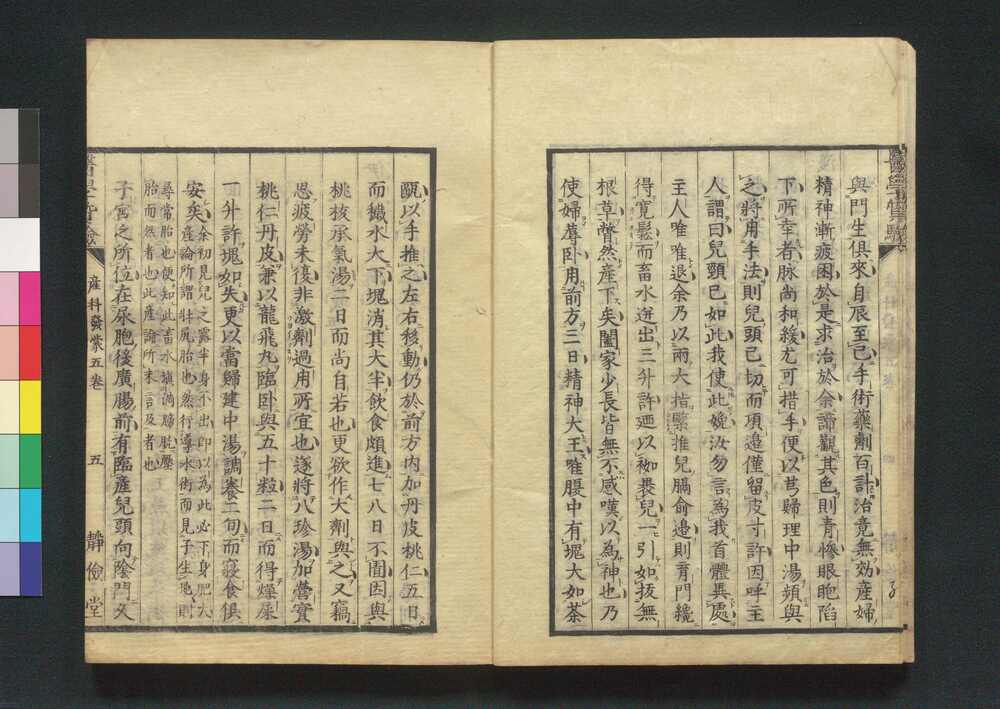 與門生俱來自辰至巳手術藥劑百計治竟無効產婦
精神漸疲困於是求治於余諦觀其色則青慘眼胞陷
下所幸者脉尚和緩尤可措手便以芎歸理中湯頻與
之將用手法則兒頭已切而項邊僅留皮寸許因呼主
人謂曰兒頸已如此我使此娩汝勿言為我首體異處
主人唯唯退余乃以兩大指緊推兒膈俞邊則育門纔
得寛鬆而畜水迸出三升許廼以袽褁兒一引如拔無
根草瞥然產下矣闔家少長皆無不感嘆以為神也乃
使婦蓐卧用前方三日精神大王唯腹中有塊大如茶
甌以手推之左右移動仍於前方内加丹皮桃仁五日
而穢水大下塊消其大半飲食頗進七八日不圊因與
桃核承氣湯二日而尚自若也更欲作大劑與之又竊
思疲勞未復非激劑過用所宜也遂將八珍湯加鶯實
桃仁丹皮兼以龍飛丸臨卧與五十粒二日而得燥屎
一升許塊如失更以當歸建中湯調養二旬而寢食俱
安矣
余初見兒之露半身不出即以為此必下身肥大
產論所謂牡𡱁胎也然行導水術而見子生地則
尋常胎也便知此畜水填滿臍腉壓
胎而然者也此產論所未言及者也
子宮之所位在尿胞後廣腸前有臨產兒頭向陰門又
醫學實驗
產科發蒙五卷
五
靜儉堂